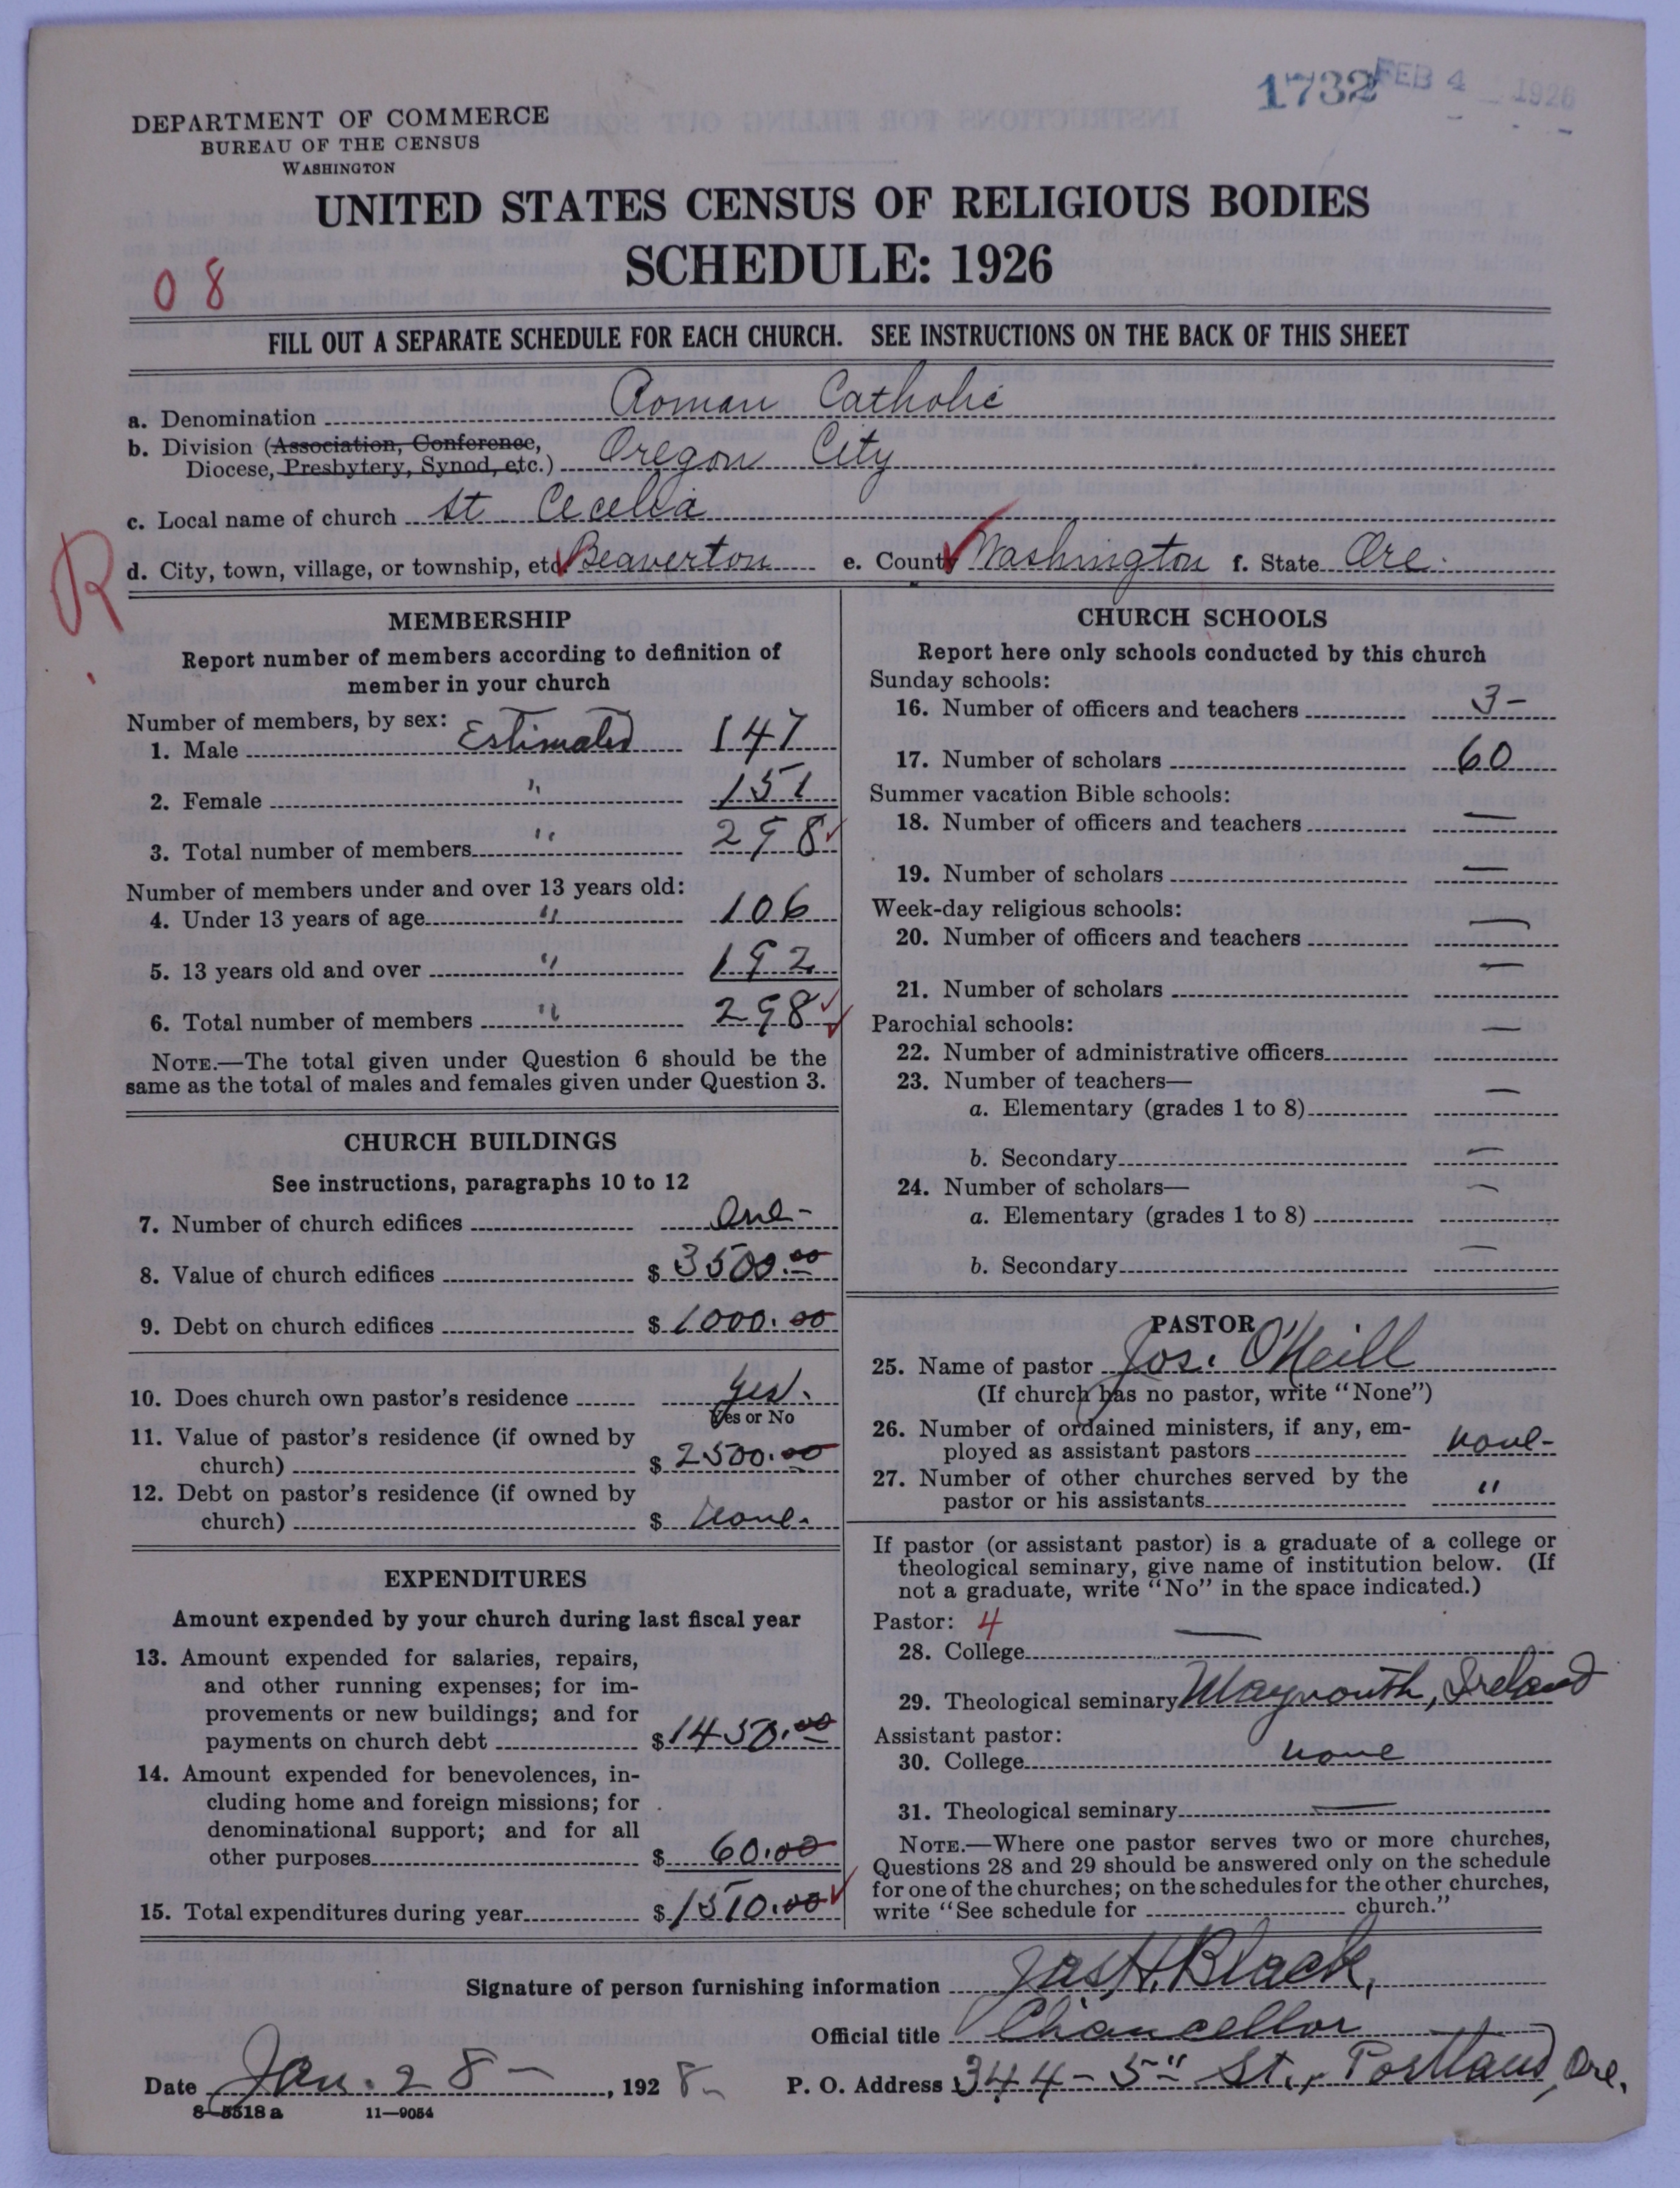 1732 FEB 4 1926
DEPARTMENT OF COMMERCE
BUREAU OF THE CENSUS
WASHINGTON
UNITED STATES CENSUS OF RELIGIOUS BODIES
SCHEDULE: 1926
08
FILL OUT A SEPARATE SCHEDULE FOR EACH CHURCH. SEE INSTRUCTIONS ON THE BACK OF THIS SHEET
a. Denomination Roman Catholic
b. Division (Association, Conference,
Diocese, Presbytery, Synod, etc.) Oregon City
c. Local name of church St Cecelia
R
d. City, town, village, or township, etc. Beaverton e. County Washington f. State Ore.
MEMBERSHIP
Report number of members according to definition of
member in your church
Number of members, by sex:
1. Male Estimated 147
2. Female " 151
3. Total number of members " 298
Number of members under and over 13 years old:
4. Under 13 years of age " 106
5. 13 years old and over " 192
6. Total number of members " 298
NOTE.—The total given under Question 6 should be the
same as the total of males and females given under Question 3.
CHURCH BUILDINGS
See instructions, paragraphs 10 to 12
7. Number of church edifices One-
8. Value of church edifices $ 3500.00
9. Debt on church edifices $ 1000.00
10. Does church own pastor's residence Yes.
Yes or No
11. Value of pastor's residence (if owned by
church) $ 2500.00
12. Debt on pastor's residence (if owned by
church) $ None.
EXPENDITURES
Amount expended by your church during last fiscal year
13. Amount expended for salaries, repairs,
and other running expenses; for im-
provements or new buildings; and for
payments on church debt $ 1450.00
14. Amount expended for benevolences, in-
cluding home and foreign missions; for
denominational support; and for all
other purposes $ 60.00
15. Total expenditures during year $ 1510.00
CHURCH SCHOOLS
Report here only schools conducted by this church
Sunday schools:
16. Number of officers and teachers 3-
17. Number of scholars 60
Summer vacation Bible schools:
18. Number of officers and teachers —
19. Number of scholars —
Week-day religious schools:
20. Number of officers and teachers —
21. Number of scholars —
Parochial schools:
22. Number of administrative officers —
23. Number of teachers—
a. Elementary (grades 1 to 8) —
b. Secondary —
24. Number of scholars—
a. Elementary (grades 1 to 8) —
b. Secondary —
PASTOR
25. Name of pastor Jos. O'Neill
(If church has no pastor, write "None")
26. Number of ordained ministers, if any, em-
ployed as assistant pastors none-
27. Number of other churches served by the
pastor or his assistants "
If pastor (or assistant pastor) is a graduate of a college or
theological seminary, give name of institution below. (If
not a graduate, write "No" in the space indicated.)
Pastor: 4
28. College —
29. Theological seminary Maynouth, Ireland
Assistant pastor:
30. College none
31. Theological seminary —
NOTE.—Where one pastor serves two or more churches,
Questions 28 and 29 should be answered only on the schedule
for one of the churches; on the schedules for the other churches,
write "See schedule for church."
Signature of person furnishing information Jas H. Black,
Official title Chancellor
Date Jan. 28-, 1928- P. O. Address 344-5" St., Portland, Ore.
8-5518a 11-9054